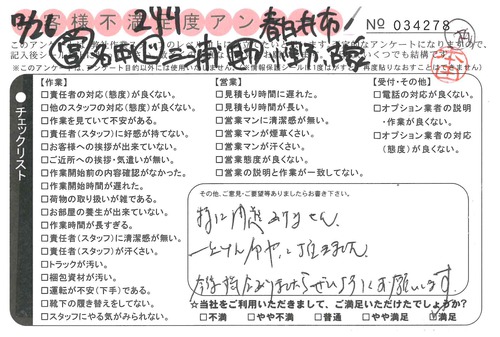 12/26 244 春日井市
お客様不満足度アンケート
No 034278
チェックリスト
【作業】
□責任者の対応(態度)が良くない。
□他のスタッフの対応(態度)が良くない。
□作業を見ていて不安がある。
□責任者(スタッフ)に好感が持てない。
□お客様への挨拶が出来ていない。
□ご近所への挨拶・気遣いが無い。
□作業開始前の内容確認がなかった。
□作業開始時間が遅れた。
□荷物の取り扱いが雑である。
□お部屋の養生が出来ていない。
□作業時間が長すぎる。
□責任者(スタッフ)に清潔感が無い。
□責任者(スタッフ)が汗くさい。
□トラックが汚い。
□梱包資材が汚い。
□運転が不安(下手)である。
□靴下の履き替えをしてない。
□スタッフにやる気がみられない。
【営業】
□見積もり時間に遅れた。
□見積もり時間が長い。
□営業マンに清潔感が無い。
□営業マンが煙草くさい。
□営業マンが汗くさい。
□営業態度が良くない。
□営業の説明と作業が一致してない。
【受付・その他】
□電話の対応が良くない。
□オプション業者の説明
・作業が良くない。
□オプション業者の対応
(態度)が良くない。
その他、ご意見・ご要望等ありましたらお書き下さい。
特に問題ありません。
☆当社をご利用いただきまして、ご満足いただけたでしょうか?
□不満 □やや不満 □普通 □やや満足 □満足